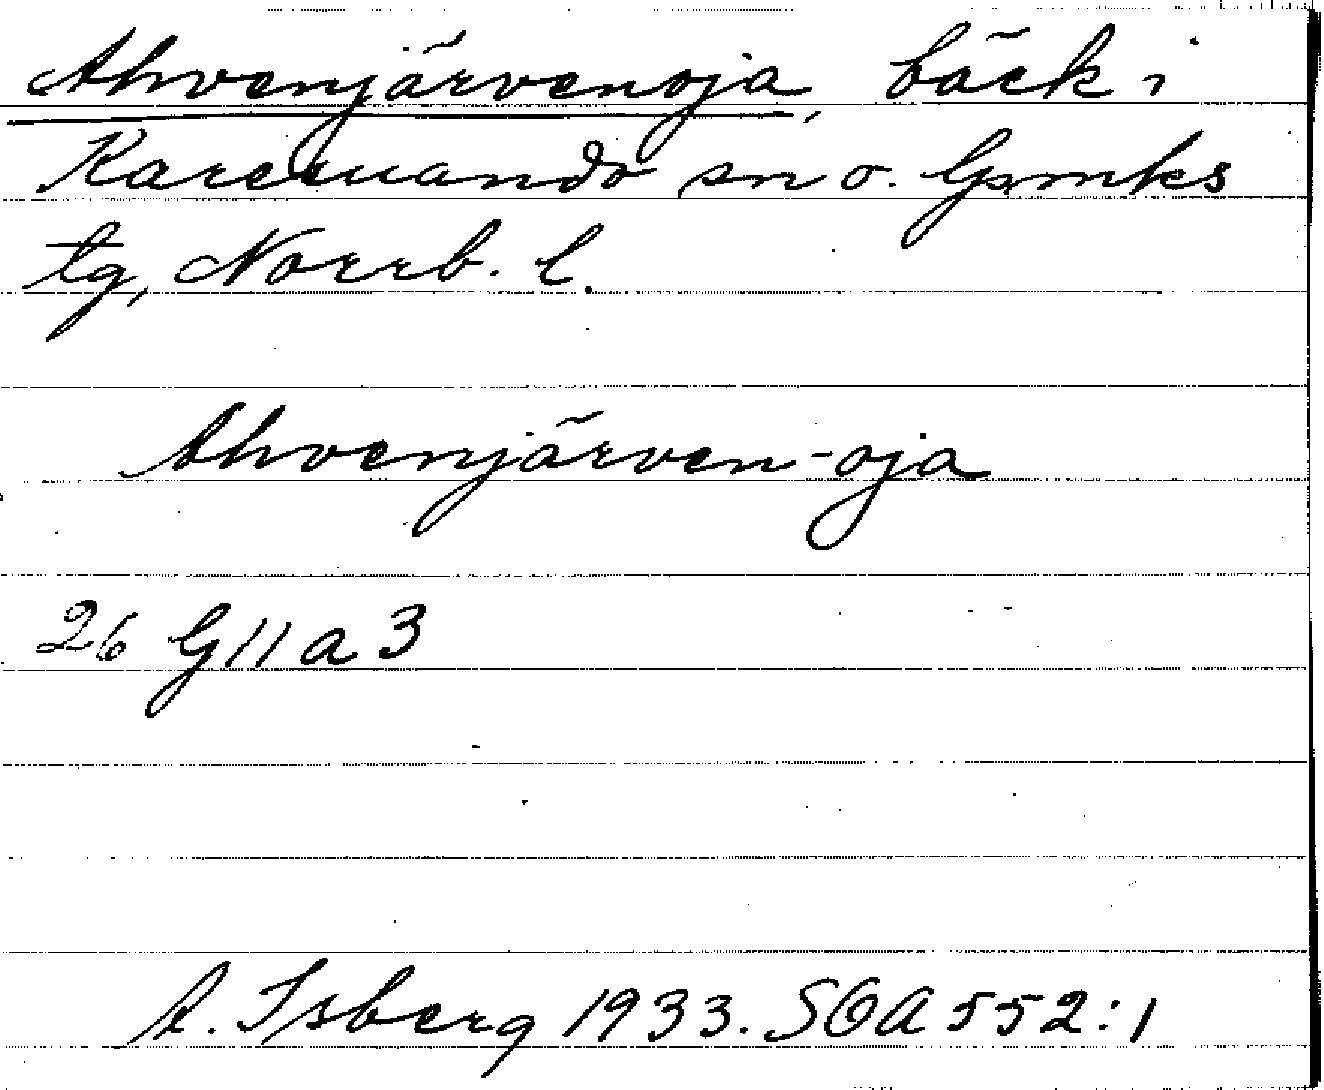 Ahvenjärvenoja, bäck i
Karesuando sn o. Gpsmks
tg, Norrb. l.
Ahvenjärven-oja
26 G 11 a 3
A. Isberg 1933. SOA 552:1